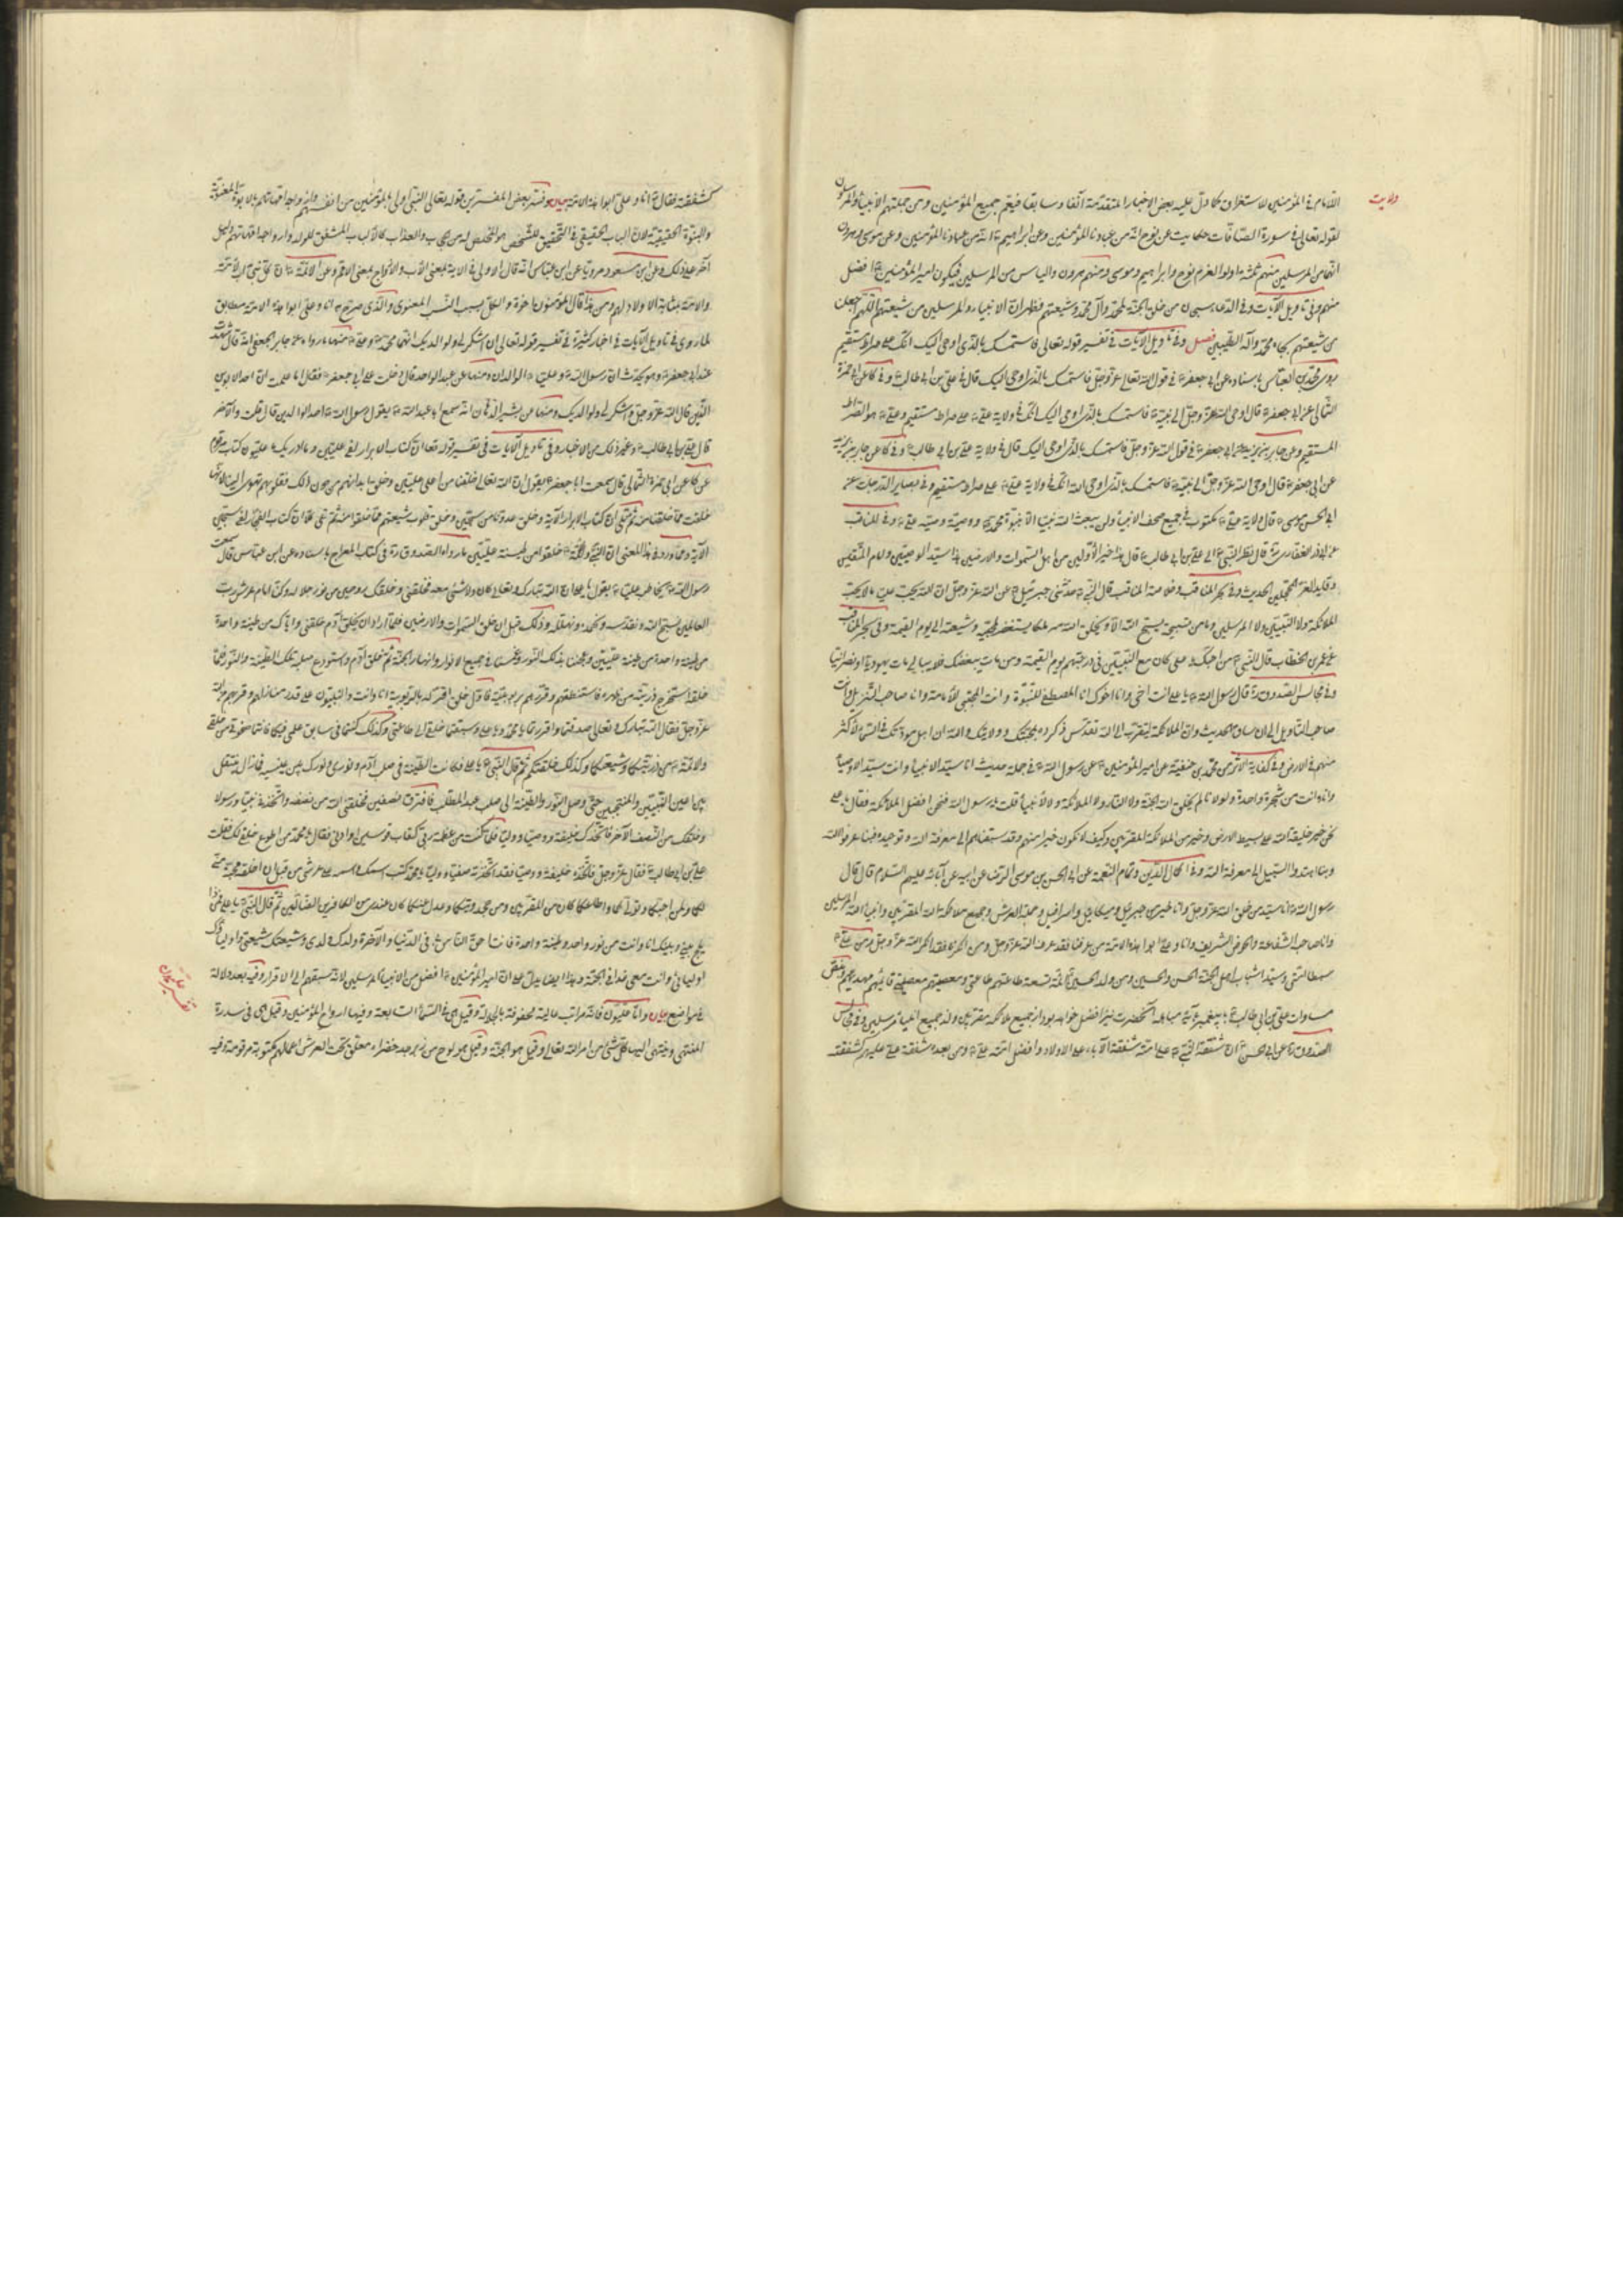 ولايت
اللام في المؤمنين للاستغراق كما دلّ عليه بعض الاخبار المتقدّمة آنفا وسابقا فيعم جميع المؤمنين ومن جملتهم الانبياء والمرسلون
لقوله تعالى في سورة الصافّات حكايت عن نوح انّه من عبادنا المؤمنين وعن ابراهيم انّه من عبادنا المؤمنين وعن موسى وهرون
انّهما من المرسلين منهم ثلثة اولوا العزم نوح وابراهيم وموسى ومنهم هرون والياس من المرسلين فيكون امير المؤمنين افضل
منهم وفي تاويل الآيات وفي الدعاء سبحان من خلق الجنّة لمحمّد وآل محمّد وشيعتهم فظهر انّ الانبياء والمرسلين من شيعتهم اللّهم اجعلنا
من شيعتهم بجاه محمّد وآله الطيّبين فصل وفي تاويل الآيات في تفسير قوله تعالى فاستمسك بالّذي اوحي اليك انّك على صراط مستقيم
روى محمّد بن العباس باسناده عن ابي جعفر في قول الله تعالى عزّ وجلّ فاستمسك بالّذي اوحي اليك قال في علي بن ابي طالب وفي كا عن ابي حمزة
الثمالي عن ابي جعفر قال اوحى الله عزّ وجلّ الى نبيّه فاستمسك بالّذي اوحي اليك انّك في ولاية علي على صراط مستقيم وعلي هو الصراط
المستقيم وعن جابر بن يزيد عن ابي جعفر في قول الله عزّ وجلّ فاستمسك بالّذي اوحي اليك قال في ولاية علي بن ابي طالب وفي كا عن جابر بن يزيد
عن ابي جعفر قال اوحى الله عزّ وجلّ الى نبيّه فاستمسك بالّذي اوحي اليك انّك في ولاية علي على صراط مستقيم وفي بصاير الدرجات عن
ابي الحسن موسى قال ولاية علي مكتوب في جميع صحف الانبياء ولن يبعث الله نبيّا الّا بنبوّة محمّد ووصيّة وصيّه علي وفي المناقب
عن ابي ذر الغفاري قال نظر النبي الى علي بن ابي طالب قال هذا خير الاوّلين من اهل السموات والارضين هذا سيّد الوصيّين وامام المتّقين
وقايد الغر المحجّلين الحديث وفي بحر المناقب وخلاصة المناقب قال النبي حدّثني جبرئيل عن الله عزّ وجلّ انّ الله يحب عليّا ما لا يحب
الملائكة ولا النبيّين ولا المرسلين وما من تسبيحة يسبّح الله الّا ويخلق الله منه ملكا يستغفر لمحبّيه وشيعته الى يوم القيمة وفي بحر المناقب
عن عمر بن الخطاب قال النبي من احبّك يا علي كان مع النبيّين في درجتهم يوم القيمة ومن مات يبغضك فلا يبالي مات يهوديّا او نصرانيّا
وفي مجالس الصدوق قال رسول الله يا علي انت اخي وانا اخوك انا المصطفى للنبوّة وانت المجتبى للامامة وانا صاحب التنزيل وانت
صاحب التاويل الى ان ساق الحديث وانّ الملائكة لتتقرّب الى الله تقدّس ذكره بمحبّتك وولايتك والله ان اهل مودّتك في السماء لاكثر
منهم في الارض وفي كفاية الاثر عن محمّد بن حنفيّة عن امير المؤمنين عن رسول الله في جملة حديث انا سيّد الانبياء وانت سيّد الاوصياء
وانا وانت من شجرة واحدة ولولا نا لم يخلق الله الجنّة ولا النار ولا الملائكة ولا الانبياء قلت يا رسول الله فنحن افضل ام الملائكة فقال يا علي
نحن خير خليقة الله على بسيط الارض وخير من الملائكة المقرّبين وكيف لا نكون خيرا منهم وقد سبقناهم الى معرفة الله وتوحيده فبنا عرفوا الله
وبنا اهتدوا السبيل الى معرفة الله وفي اكمال الدّين وتمام النعمة عن ابي الحسن بن موسى الرضا عن ابيه عن آبائه عليهم السلام قال قال
رسول الله انا سيّد من خلق الله عزّ وجلّ وانا خير من جبرئيل وميكائيل واسرافيل وحملة العرش وجميع ملائكة الله المقرّبين وانبياء الله المرسلين
وانا صاحب الشفاعة والحوض الشريف وانا وعلي ابوا هذه الامّة من عرفنا فقد عرف الله عزّ وجلّ ومن انكرنا فقد انكر الله عزّ وجلّ ومن علي
سبطا امّتي وسيّدا شباب اهل الجنّة الحسن والحسين ومن ولد الحسين ائمّة تسعة طاعتهم طاعتي ومعصيتهم معصيتي قائمهم مهديّهم
مساوات علي بن ابي طالب با پيغمبر بآية مباهله آنحضرت نيز افضل خواهد بود از جميع ملائكه مقرّبين واز جميع انبياء مرسلين وفي مجالس
الصدوق عن ابي الحسن انّ شفقة النبي على امّته شفقة الآباء على الاولاد وافضل امّته علي ومن بعده شفقة علي عليهم كشفقته
كشفقته فقال انا وعلي ابوا هذه الامّة بيان وفسّر بعض المفسرين قوله تعالى النبي اولى بالمؤمنين من انفسهم وازواجه امّهاتهم بالابوّة المعنويّة
والبنوّة الحقيقيّة لانّ الباب الحقيقي في التحقيق للشخص هو المخلص له من والعذاب كالاب المشفق للولد وازواجه امّهاتهم دليل
آخر على ذلك وعن ابن مسعود مرويّا عن ابن عباس انّه قال الاولى في الآية بمعنى الاب والازواج بمعنى الام وعن الائمّة انّ كلّ نبيّ اب لامّته
والامّة بمثابة الاولاد لهم ومن هذا قال المؤمنون اخوة والكلّ بسبب النسب المعنوي والّذي صرّح به انا وعلي ابوا هذه الامّة مطابق
لما روى في تاويل الآيات في اخبار كثيرة في تفسير قوله تعالى ان اشكر لي ولوالديك انّهما محمّد وعلي منها ما رواه عن جابر الجعفي انّه قال
عند ابي جعفر وهو يحدّث انّ رسول الله وعليّا الوالدان ومنها عن عبد الواحد قال دخلت على ابي جعفر فقال اما علمت انّ احد الابوين
الّذين قال الله عزّ وجلّ اشكر لي ولوالديك ومنها عن بشير الدّهان انّه سمع ابا عبد الله يقول رسول الله احد الوالدين قال قلت والآخر
قال علي بن ابي طالب وغير ذلك من الاخبار وفي تاويل الآيات في تفسير قوله تعالى انّ كتاب الابرار لفي علّيّين وما ادريك ما علّيّون كتاب مرقوم
عن كا عن ابي حمزة الثمالي قال سمعت ابا جعفر يقول انّ الله تعالى خلقنا من اعلى علّيّين وخلق ابدانهم من دون ذلك فقلوبهم تهوى الينا لانّها
خلقت ممّا خلقنا منه ثمّ تلا انّ كتاب الابرار الآية وخلق عدوّنا من سجّين وخلق قلوب شيعتهم ممّا خلقوا منه ثمّ تلا كلّا انّ كتاب الفجّار لفي سجّين
الآية وممّا ورد في هذا المعنى انّ النبي والائمّة خلقوا من طينة علّيّين ما رواه الصدوق في كتاب المعراج باسناده عن ابن عباس قال سمعت
رسول الله يخاطب عليّا يقول يا علي انّ الله تبارك وتعالى كان ولا شيء معه فخلقني وخلقك روحين من نور جلاله وكنّا امام عرش رب
العالمين نسبّح الله ونقدّسه ونحمده ونهلّله وذلك قبل ان خلق السموات والارضين فلمّا اراد ان يخلق آدم خلقني وايّاك من طينة واحدة
من طينة علّيّين وعجننا بذلك النور وغمسنا في جميع الانوار وانهار الجنّة ثمّ خلق آدم واستودع صلبه تلك الطينة والنور فلمّا
خلقه استخرج ذريّته من ظهره فاستنطقهم وقرّرهم بربوبيّته فاوّل خلق اقر له بالربوبيّة انا وانت والنبيّون على قدر منازلهم وقربهم من الله
عزّ وجلّ فقال الله تبارك وتعالى صدقتما واقررتما يا محمّد ويا علي وسبقتما خلقي الى طاعتي وكذلك كنتما في سابق علمي فيكما فانتما صفوتي من خلقي
والائمّة من ذريّتكما وشيعتكما وكذلك خلقتكم ثمّ قال النبي يا علي فكانت الطينة في صلب آدم ونوري ونورك بين عينيه فما زال ينتقل
بين اعين النبيّين والمنتجبين حتّى وصل النور والطينة الى صلب عبد المطّلب فافترق نصفين فخلقني الله من نصفه واتّخذني نبيّا ورسولا
وخلقك من النصف الآخر فاتّخذك خليفة ووصيّا ووليّا فلمّا كنت من عظمة ربّي كقاب قوسين او ادنى فقال يا محمّد من اطوع خلقي لك فقلت
علي بن ابي طالب فقال عزّ وجلّ فاتّخذه خليفة ووصيّا فقد اتّخذته صفيّا ووليّا يا محمّد كتبت اسمك واسمه على عرشي من قبل ان اخلق محبّة منّي
لكما ولمن احبّكما وتولّاكما واطاعكما كان من المقرّبين ومن جحد ولايتكما وعدل عنكما كان عندي من الكافرين الضالّين ثمّ قال النبي يا علي فمن ذا
يلج بيني وبينك انا وانت من نور واحد وطينة واحدة فانت احق الناس بي في الدنيا والآخرة ولدك ولدي وشيعتك شيعتي واولياؤك
اوليائي وانت معي غدا في الجنّة وهذا ايضا يدلّ على انّ امير المؤمنين افضل من الانبياء المرسلين لانّه سبقهم الى الاقرار وفيه بعد دلالة
في مواضع بيان وامّا علّيّون فانّه مراتب عالية محفوفة بالجلالة وقيل هي في السماء السابعة وفيها ارواح المؤمنين وقيل هي في سدرة
المنتهى وينتهي اليها كلّ شيء من امر الله تعالى وقيل هو الجنّة وقيل هو لوح من زبرجد خضراء معلّق تحت العرش اعمالهم مكتوبة مرقومة فيه
تفسير علّيّون